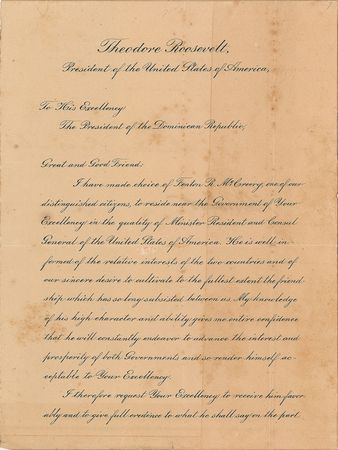 Theodore Roosevelt,
President of the United States of America,
To His Excellency
The President of the Dominican Republic,
Great and Good Friend:
I have made choice of Fenton R. McCreery, one of our
distinguished citizens, to reside near the Government of Your
Excellency in the quality of Minister Resident and Consul
General of the United States of America. He is well in-
formed of the relative interests of the two countries and of
our sincere desire to cultivate to the fullest extent the friend-
ship which has so long subsisted between us. My knowledge
of his high character and ability gives me entire confidence
that he will constantly endeavor to advance the interest and
prosperity of both Governments and so render himself ac-
ceptable to Your Excellency.
I therefore request Your Excellency to receive him favor-
ably and to give full credence to what he shall say on the part